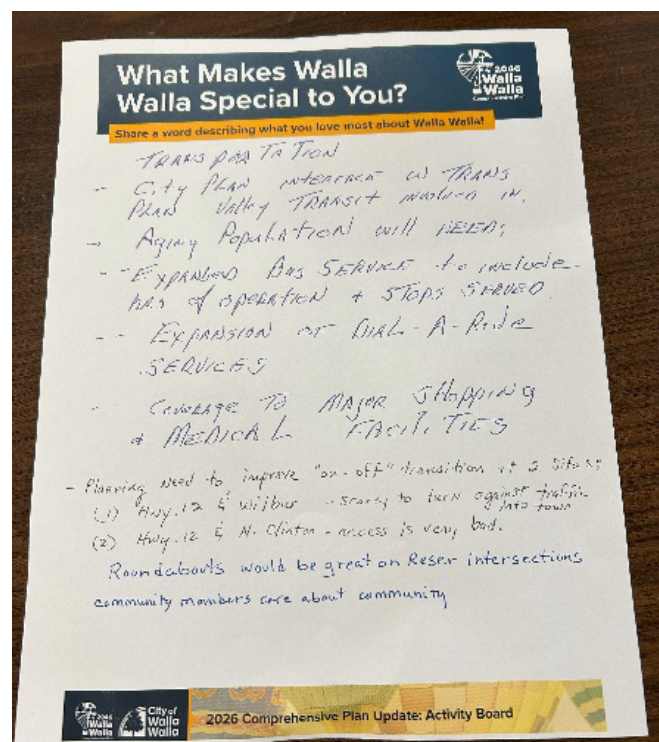 What Makes Walla
Walla Special to You?
2046
Walla
Walla
Share a word describing what you love most about Walla Walla!
TRANSPORTATION
- City PLAN interface w TRANS
PLAN Valley TRANSit involved in.
- Aging Population will NEED:
- - EXPANDED BUS SERVICE to include
hrs of operation + STOPS SERVED
- - EXPANSION OF DIAL-A-Ride
SERVICES
- COVERAGE TO MAJOR SHOPPING
+ MEDICAL FACILITIES
- Planning need to improve "on-off" transition at 2 sites:
(1) Hwy. 12 & Wilbur - scarey to turn against traffic
into town
(2) Hwy. 12 & N. Clinton - access is very bad.
Roundabouts would be great on Reser intersections
community members care about community
2046
Walla
Walla
City of
Walla
Walla
2026 Comprehensive Plan Update: Activity Board